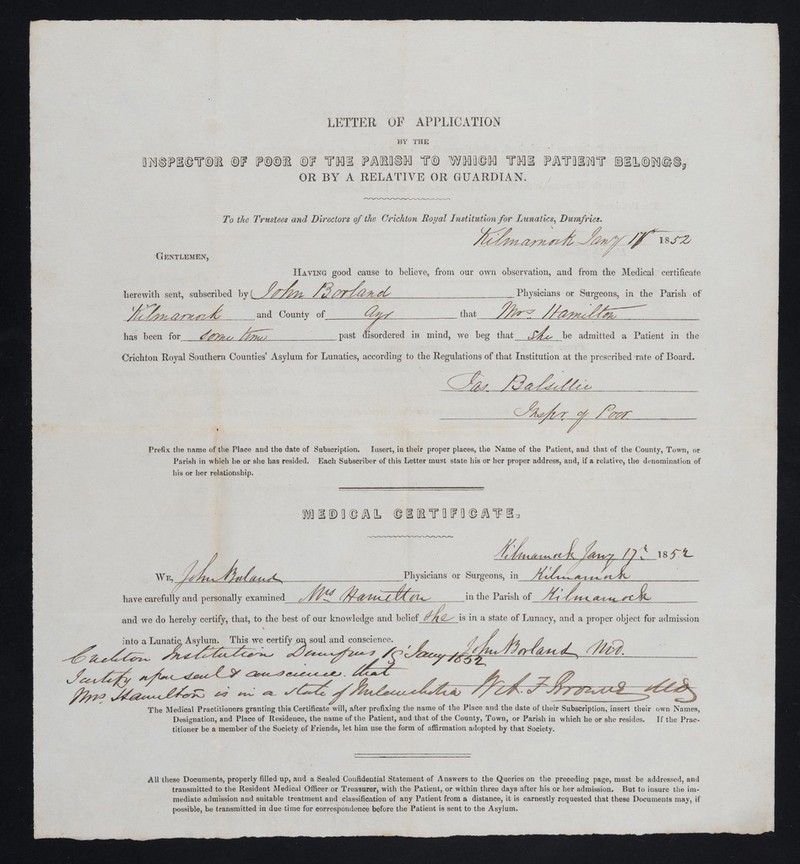 LETTER OF APPLICATION
BY THE
INSPECTOR OF POOR OF THE PARISH TO WHICH THE PATIENT BELONGS,
OR BY A RELATIVE OR GUARDIAN.
To the Trustees and Directors of the Crichton Royal Institution for Lunatics, Dumfries.
Kilmarnock Jany 17th 1852
GENTLEMEN,
HAVING good cause to believe, from our own observation, and from the Medical certificate
herewith sent, subscribed by John Borland Physicians or Surgeons, in the Parish of
Kilmarnock and County of Ayr that Mrs Hamilton
has been for some time past disordered in mind, we beg that She be admitted a Patient in the
Crichton Royal Southern Counties' Asylum for Lunatics, according to the Regulations of that Institution at the prescribed rate of Board.
Jas. Balsillie
Inspr. of Poor
Prefix the name of the Place and the date of Subscription. Insert, in their proper places, the Name of the Patient, and that of the County, Town, or
Parish in which he or she has resided. Each Subscriber of this Letter must state his or her proper address, and, if a relative, the denomination of
his or her relationship.
MEDICAL CERTIFICATE.
Kilmarnock Jany 17th 1852
WE, John Borland Physicians or Surgeons, in Kilmarnock
have carefully and personally examined Mrs Hamilton in the Parish of Kilmarnock
and we do hereby certify, that, to the best of our knowledge and belief she is in a state of Lunacy, and a proper object for admission
into a Lunatic Asylum. This we certify on soul and conscience.
John Borland M.D.
Crichton Institution Dumfries Jany 1852
I certify upon soul & conscience that
Mrs. Hamilton is in a state of Melancholia W. A. F. Browne M.D.
The Medical Practitioners granting this Certificate will, after prefixing the name of the Place and the date of their Subscription, insert their own Names,
Designation, and Place of Residence, the name of the Patient, and that of the County, Town, or Parish in which he or she resides. If the Prac-
titioner be a member of the Society of Friends, let him use the form of affirmation adopted by that Society.
All these Documents, properly filled up, and a Sealed Confidential Statement of Answers to the Queries on the preceding page, must be addressed, and
transmitted to the Resident Medical Officer or Treasurer, with the Patient, or within three days after his or her admission. But to insure the im-
mediate admission and suitable treatment and classification of any Patient from a distance, it is earnestly requested that these Documents may, if
possible, be transmitted in due time for correspondence before the Patient is sent to the Asylum.